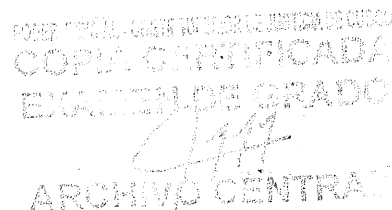 PODER JUDICIAL - CORTE SUPERIOR DE JUSTICIA DE CUSCO
COPIA CERTIFICADA
EXAMEN DE GRADO
ARCHIVO CENTRAL